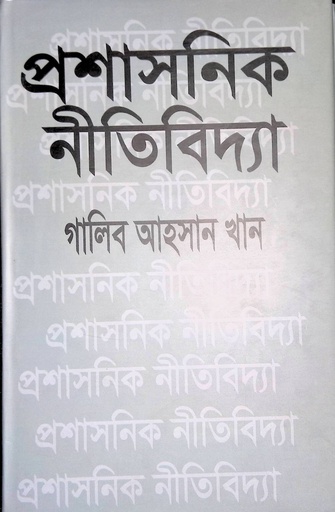 প্রশাসনিক নীতিবিদ্যা
প্রশাসনিক
প্রশাসনিক নীতিবিদ্যা
নীতিবিদ্যা
প্রশাসনিক নীতিবিদ্যা
গালিব আহসান খান
প্রশাসনিক নীতিবিদ্যা
প্রশাসনিক নীতিবিদ্যা
প্রশাসনিক নীতিবিদ্যা
প্রশাসনিক নীতিবিদ্যা
প্রশাসনিক নীতিবিদ্যা